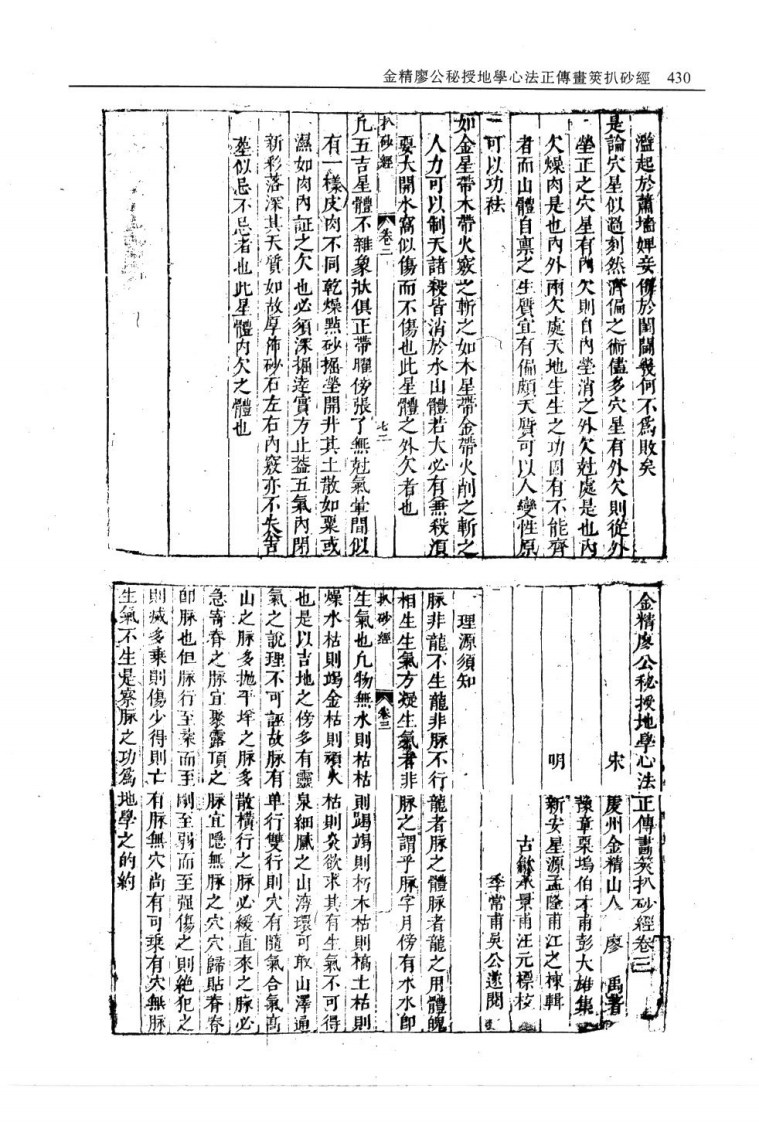 金精廖公秘授地學心法正傳畫筴扒砂經 430
濫起於蕭墻婢妾儕於閨闈幾何不爲敗矣
是論穴星似過刻然濟偏之術儘多穴星有外欠則從外
塋正之穴星有內欠則自內塋消之外欠尅處是也內
欠燥肉是也內外兩欠處天地生生之功固有不能齊
者而山體自禀之生質宜有偏頗天質可以人變性原
可以功祛
如金星帶木帶火竅之斬之如木星帶金帶火削之斬之
人力可以制天諸殺皆消於水山體若大必有無殺湏
要大開水窩似傷而不傷也此星體之外欠者也
扒砂經 卷二 七二
凢五吉星體不雜象狀俱正帶曜傍張了無尅氣葢間似
有一樣皮肉不同乾燥點砂掘塋開井其土散如粟或
濕如肉內証之欠也必須深掘逹實方止葢五氣內閉
新彩落深其天質如故厚佈砂石左右內竅亦不失舍
塟似忌不忌者也此星體內欠之體也
金精廖公秘授地學心法正傳畫筴扒砂經卷三
宋 虔州金精山人 廖 禹著
豫章栗塢伯才甫彭大雄集
明 新安星源孟隆甫江之棟輯
古歙永景甫汪元標校
季常甫吳公遂閱
理源須知
脉非龍不生龍非脉不行龍者脉之體脉者龍之用體魄
相生生氣方凝生氣者非脉之謂乎脉字月傍有水水卽
扒砂經 卷三
生氣也凢物無水則枯枯則蹋蹋則朽木枯則槁土枯則
燥水枯則竭金枯則頑火枯則炎欲求其有生氣不可得
也是以吉地之傍多有靈泉細膩之山濟環可取山澤通
氣之說理不可誣故脉有单行雙行則穴有隨氣合氣高
山之脉多拋平垟之脉多散橫行之脉必緩直來之脉必
急奇脊之脉宜聚露頂之脉宜隱無脉之穴穴歸貼脊脊
卽脉也但脉行至柔而至剛至弱而至强傷之則絶犯之
則滅多乘則傷少得則亡有脉無穴尚有可乘有穴無脉
生氣不生是察脉之功爲地學之的約